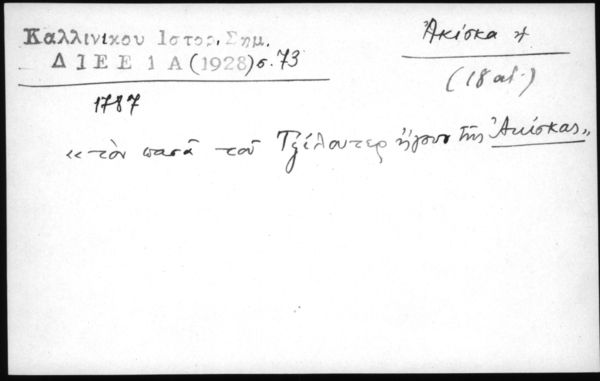 Καλλινίκου Ιστορ. Σημ.
ΔΙΕΕ 1Α (1928) σ. 73
Ἀκίσκα
(18 αἰ.)
1787
«τὸν πασᾶ τοῦ Τζέλουτερ ἤγουν τῆς Ἀκίσκας»